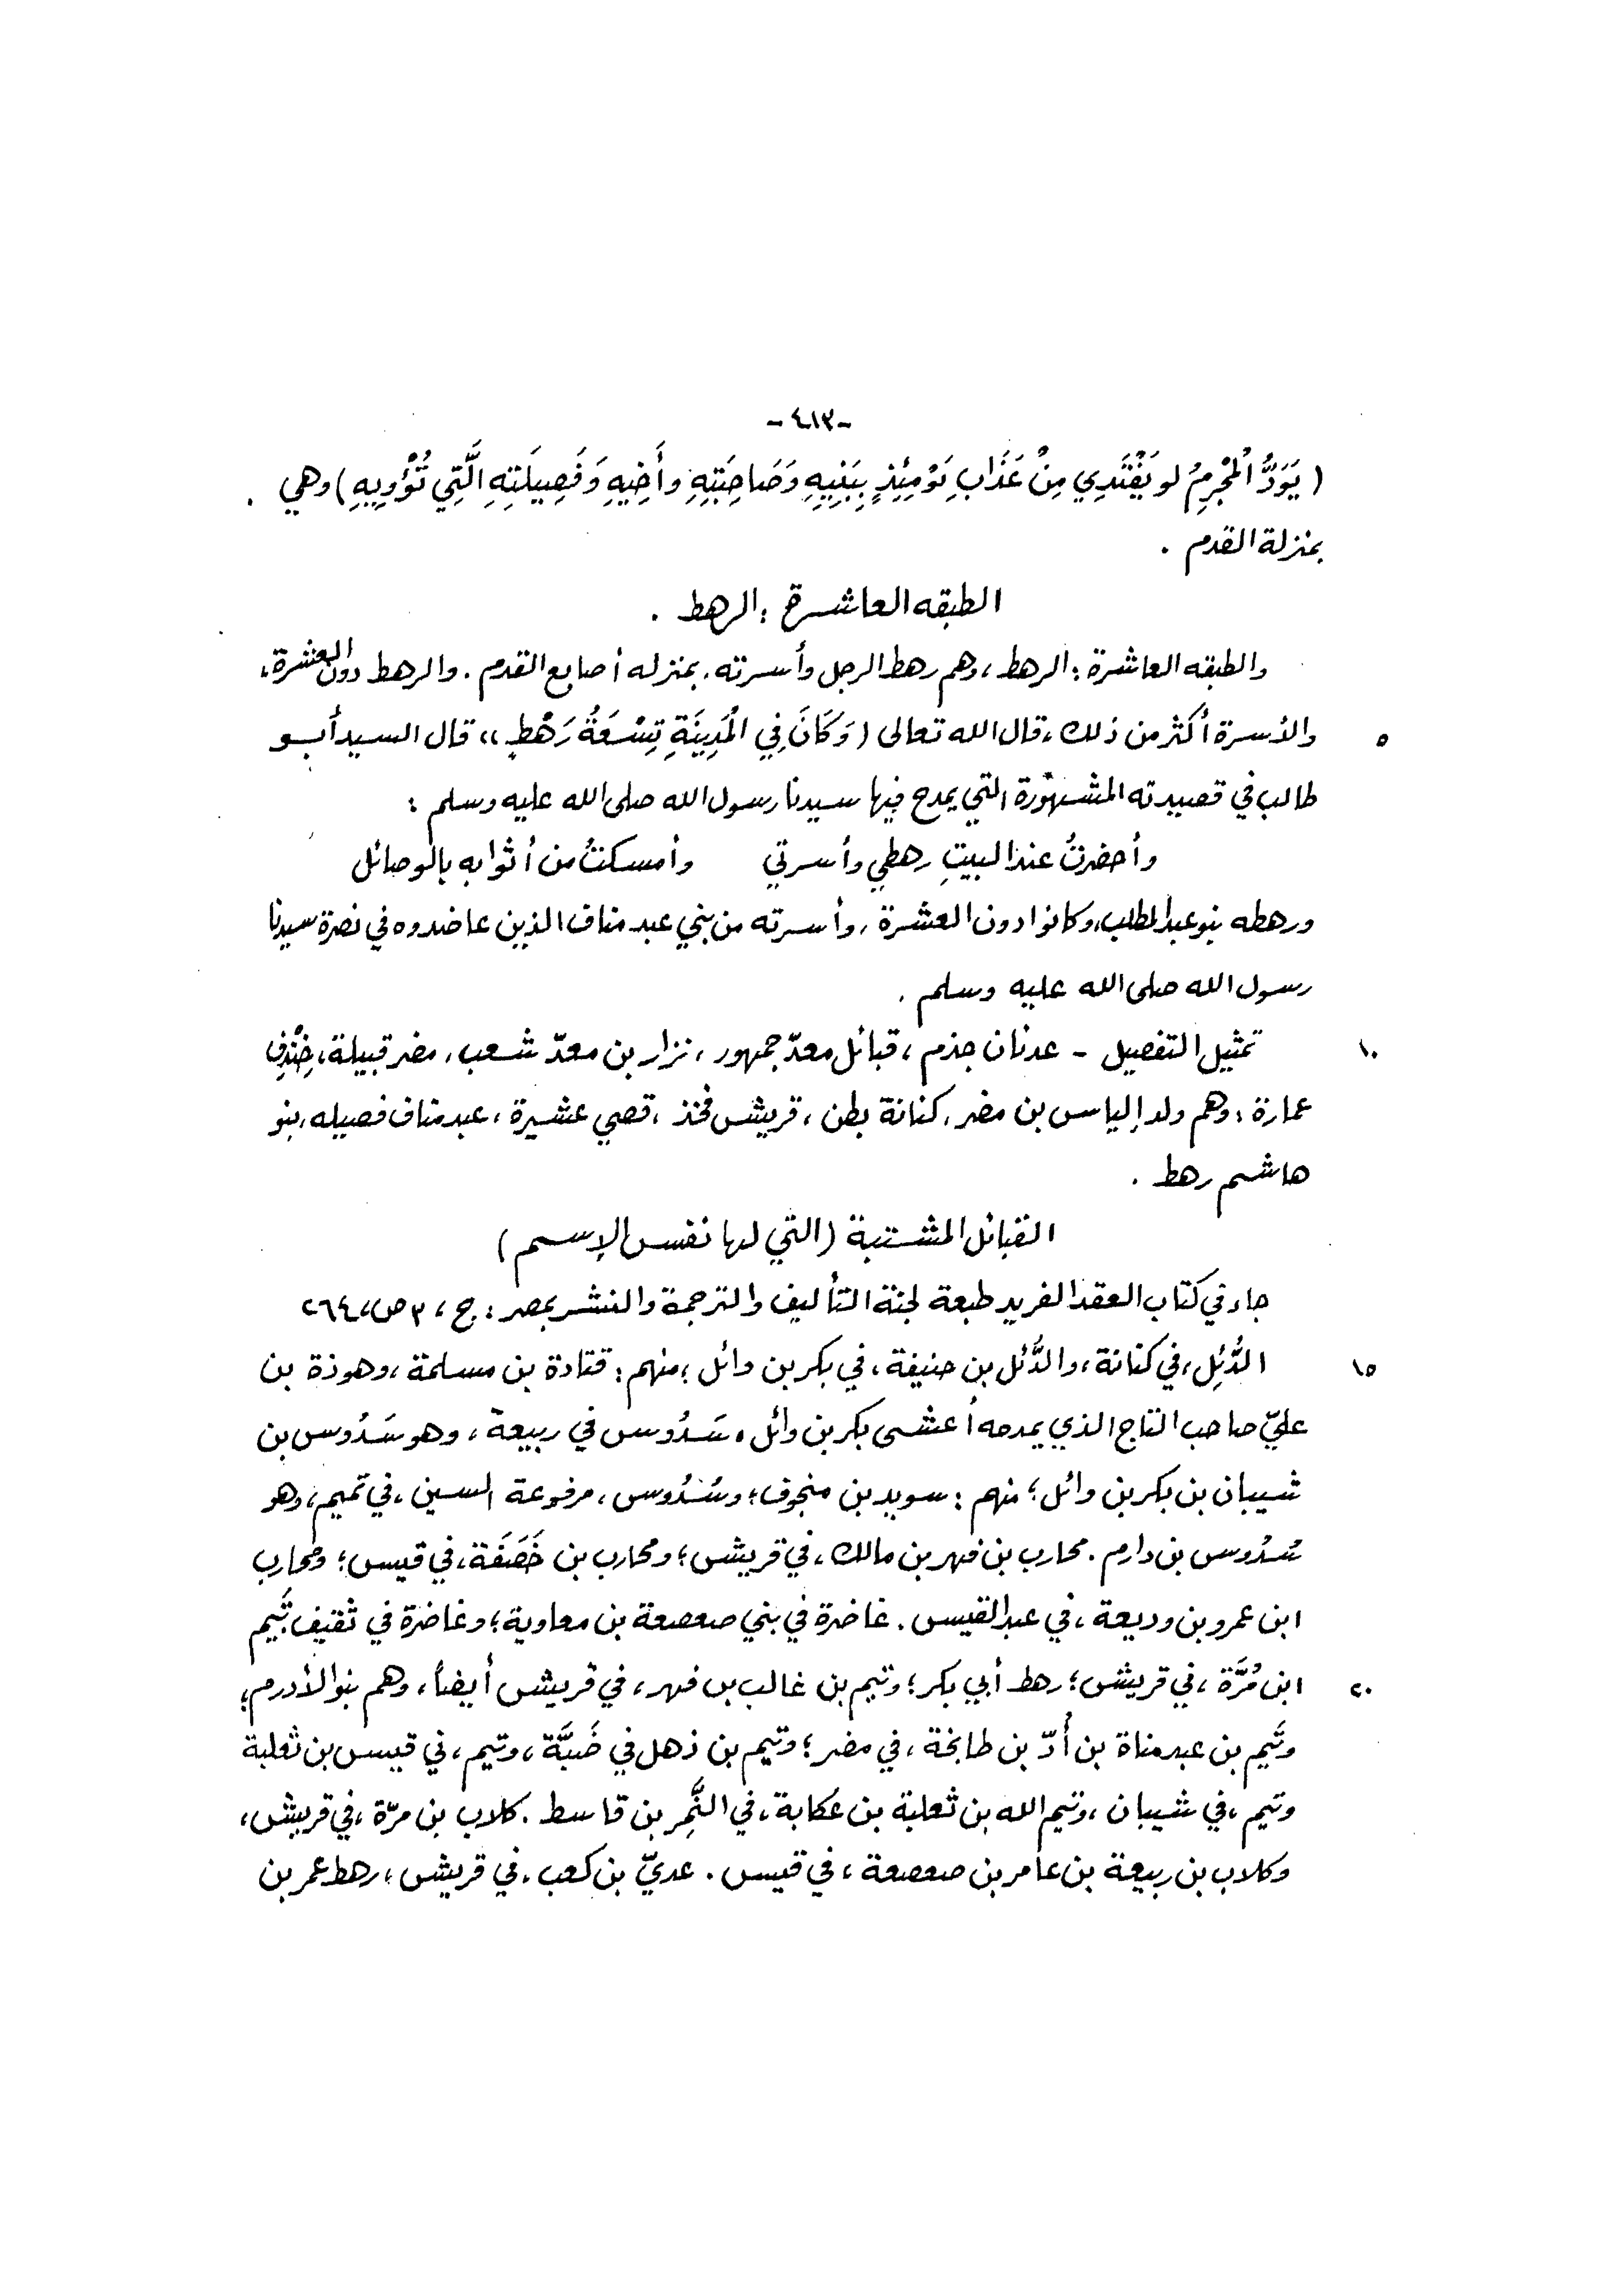 -٤١٣-
( يَوَدُّ الْمُجْرِمُ لو يَفْتَدِي مِنْ عَذَابِ يَوْمِئِذٍ بِبَنِيهِ وَصَاحِبَتِهِ وأَخِيهِ وَفَصِيلَتِهِ الَّتِي تُؤْوِيهِ ) وهي
بمنزلة القدم .
الطبقه العاشرة : الرهط .
والطبقه العاشرة : الرهط ، وهم رهط الرجل وأسرته . بمنزله أصابع القدم . والرهط دون العشرة ،
٥ والأسرة أكثر من ذلك ، قال الله تعالى ( وَكَانَ فِي الْمَدِينَةِ تِسْعَةُ رَهْطٍ ،، قال السيد أبو
طالب في قصيدته المشهورة التي يمدح فيها سيدنا رسول الله صلى الله عليه وسلم :
وأحضرتُ عند البيتِ رهطي وأسرتي وأمسكتُ من أثوابه بالوصائل
ورهطه بنو عبد المطلب ، وكانوا دون العشرة ، وأسرته من بني عبد مناف الذين عاضدوه في نصرة سيدنا
رسول الله صلى الله عليه وسلم .
١٠ تمثيل التفصيل - عدنان جذم ، قبائل معدّ جمهور ، نزار بن معدّ شعب ، مضر قبيلة ، خِنْدِف
عمارة : وهم ولد إلياس بن مضر ، كنانة بطن ، قريش فخذ ، قصي عشيرة ، عبد مناف فصيله ، بنو
هاشم رهط .
القبائل المشتبة ( التي لها نفس الإسم )
جاء في كتاب العقد الفريد طبعة لجنة التأليف والترجمة والنشر بمصر : ج ، ٣ ص ، ٢٦٤
١٥ الدُّئِل ، في كنانة ، والدُّئل بن حنيفة ، في بكر بن وائل ؛ منهم : قتادة بن مسلمة ، وهوذة بن
عليّ صاحب التاج الذي يمدحه أعشى بكر بن وائل . سَدُوس في ربيعة ، وهو سَدُوس بن
شيبان بن بكر بن وائل ؛ منهم : سويد بن منجوف ؛ وسُدُوس ، مرفوعة السين ، في تميم ، وهو
سُدُوس بن دارم . محارب بن فهر بن مالك ، في قريش ؛ ومحارب بن خَصَفَة ، في قيس ؛ ومحارب
ابن عمرو بن وديعة ، في عبد القيس . غاضرة في بني صعصعة بن معاوية ؛ وغاضرة في ثقيف . تَيم
٢٠ ابن مُرَّة ، في قريش ؛ رهط أبي بكر ؛ وتيم بن غالب بن فهر ، في قريش أيضاً ، وهم بنو الأدرم ؛
وتَيم بن عبد مناة بن أُدّ بن طابخة ، في مضر ؛ وتيم بن ذهل في ضَبَّة ، وتيم ، في قيس بن ثعلبة
وتيم ، في شيبان ، وتيم الله بن ثعلبة بن عكابة ، في النَّمِر بن قاسط . كلاب بن مرّة ، في قريش ،
وكلاب بن ربيعة بن عامر بن صعصعة ، في قيس . عديّ بن كعب ، في قريش ، رهط عمر بن